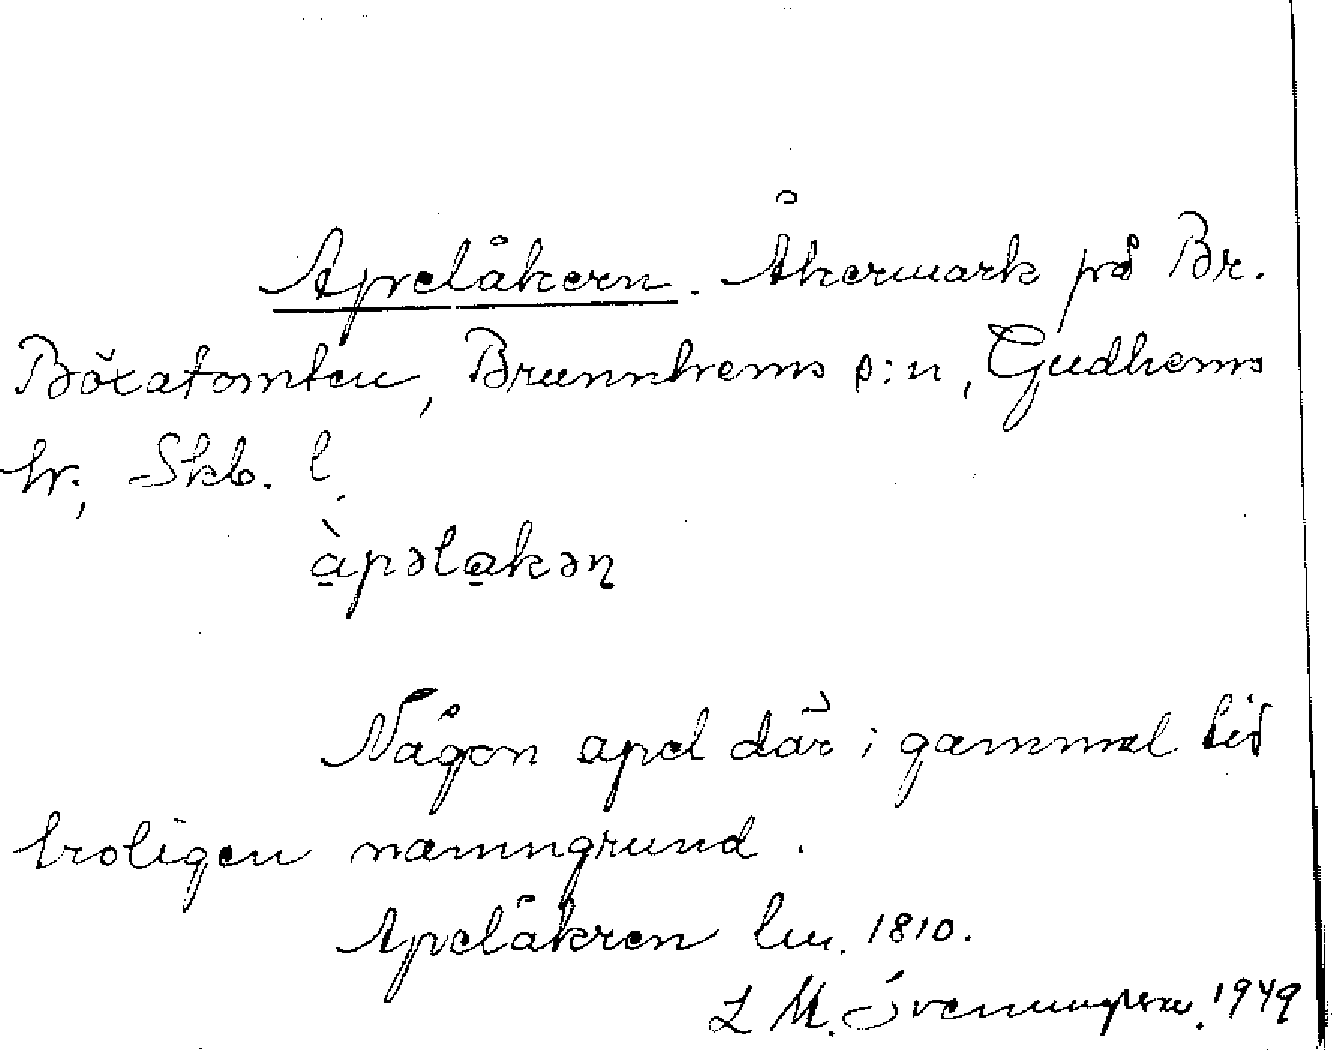 Apelåkern. Åkermark på Br.
Böratomten, Brunnhems s:n, Gudhems
hr, Skb. l.
àpəlakəɳ
Någon apel där i gammal tid
troligen namngrund.
Apelåkren lm. 1810.
L M. Svenungsson. 1949